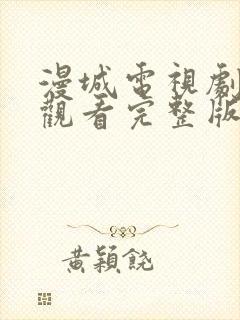 漫城電視劇
觀看完整版
黃穎饒